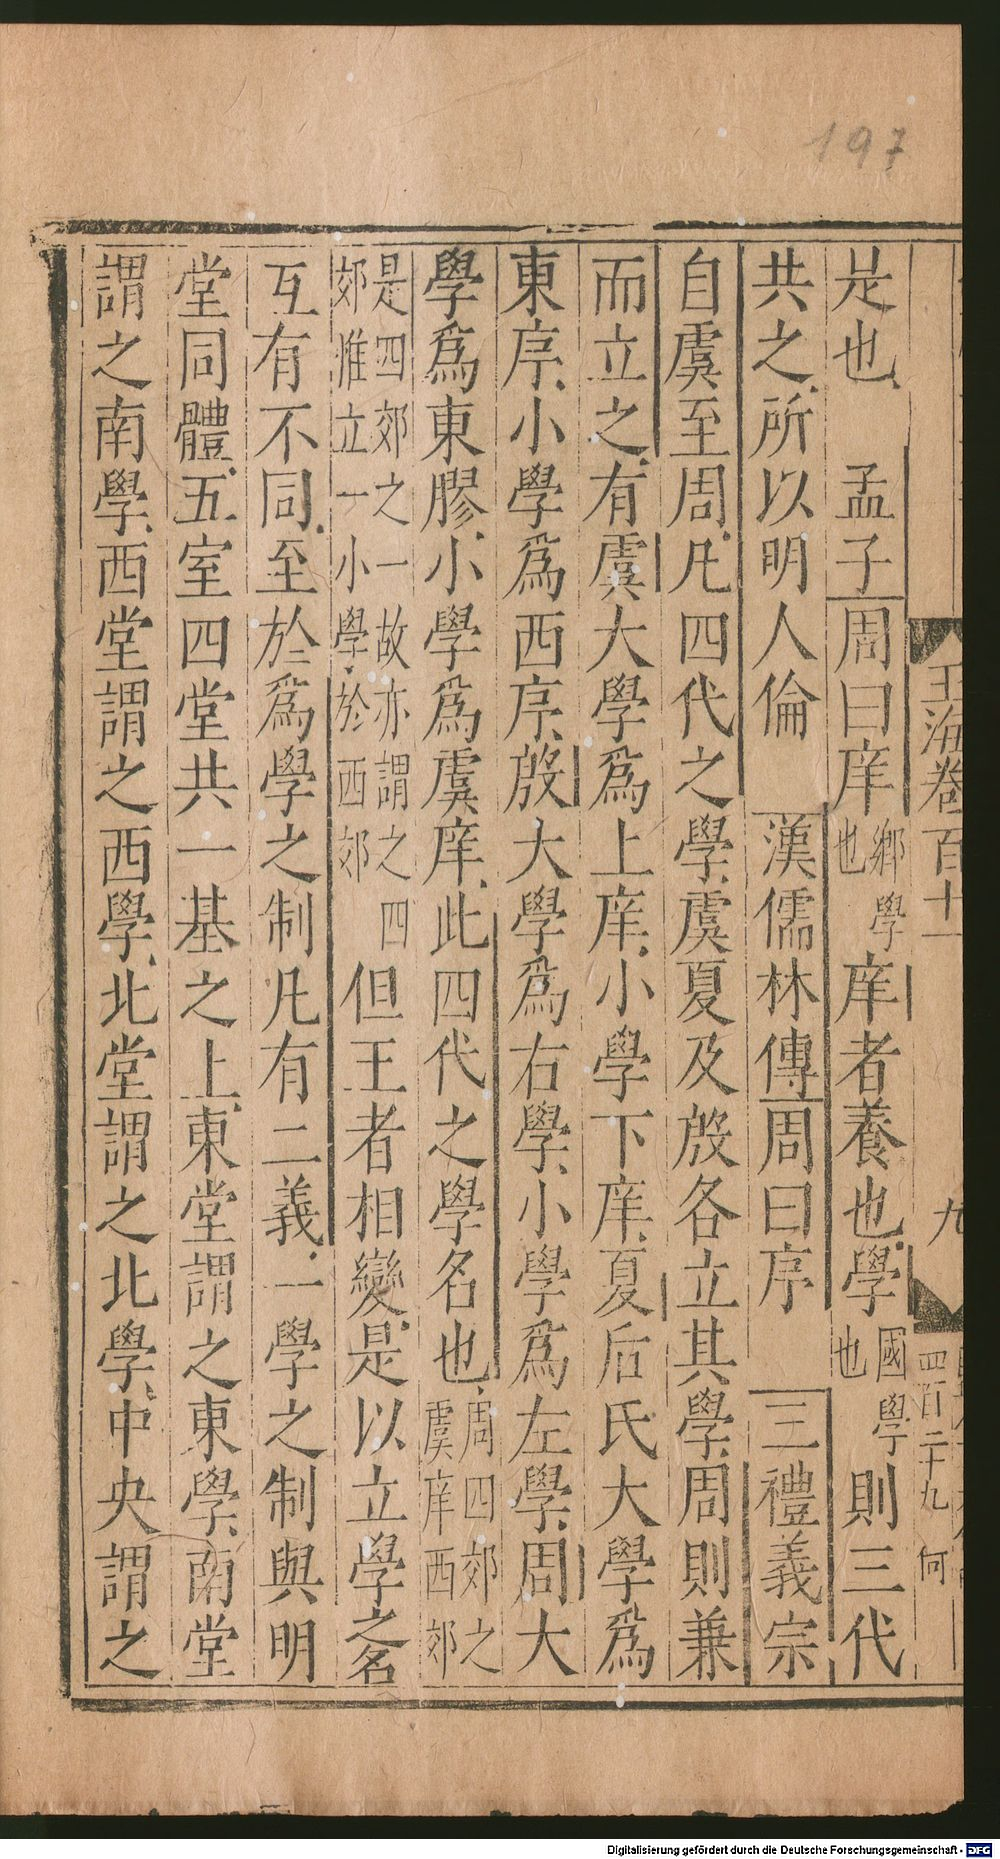 197
玉海卷百十一
九
四百二十九 何
是也 孟子周曰庠鄉學也庠者養也學國學也則三代
共之所以明人倫 漢儒林傳周曰序 三禮義宗
自虞至周凡四代之學虞夏及殷各立其學周則兼
而立之有虞大學爲上庠小學下庠夏后氏大學爲
東序小學爲西序殷大學爲右學小學爲左學周大
學爲東膠小學爲虞庠此四代之學名也周四郊之虞庠西郊
是四郊之一故亦謂之四郊惟立一小學於西郊但王者相變是以立學之名
互有不同至於爲學之制凡有二義一學之制與明
堂同體五室四堂共一基之上東堂謂之東學南堂
謂之南學西堂謂之西學北堂謂之北學中央謂之
Digitalisierung gefördert durch die Deutsche Forschungsgemeinschaft - DFG